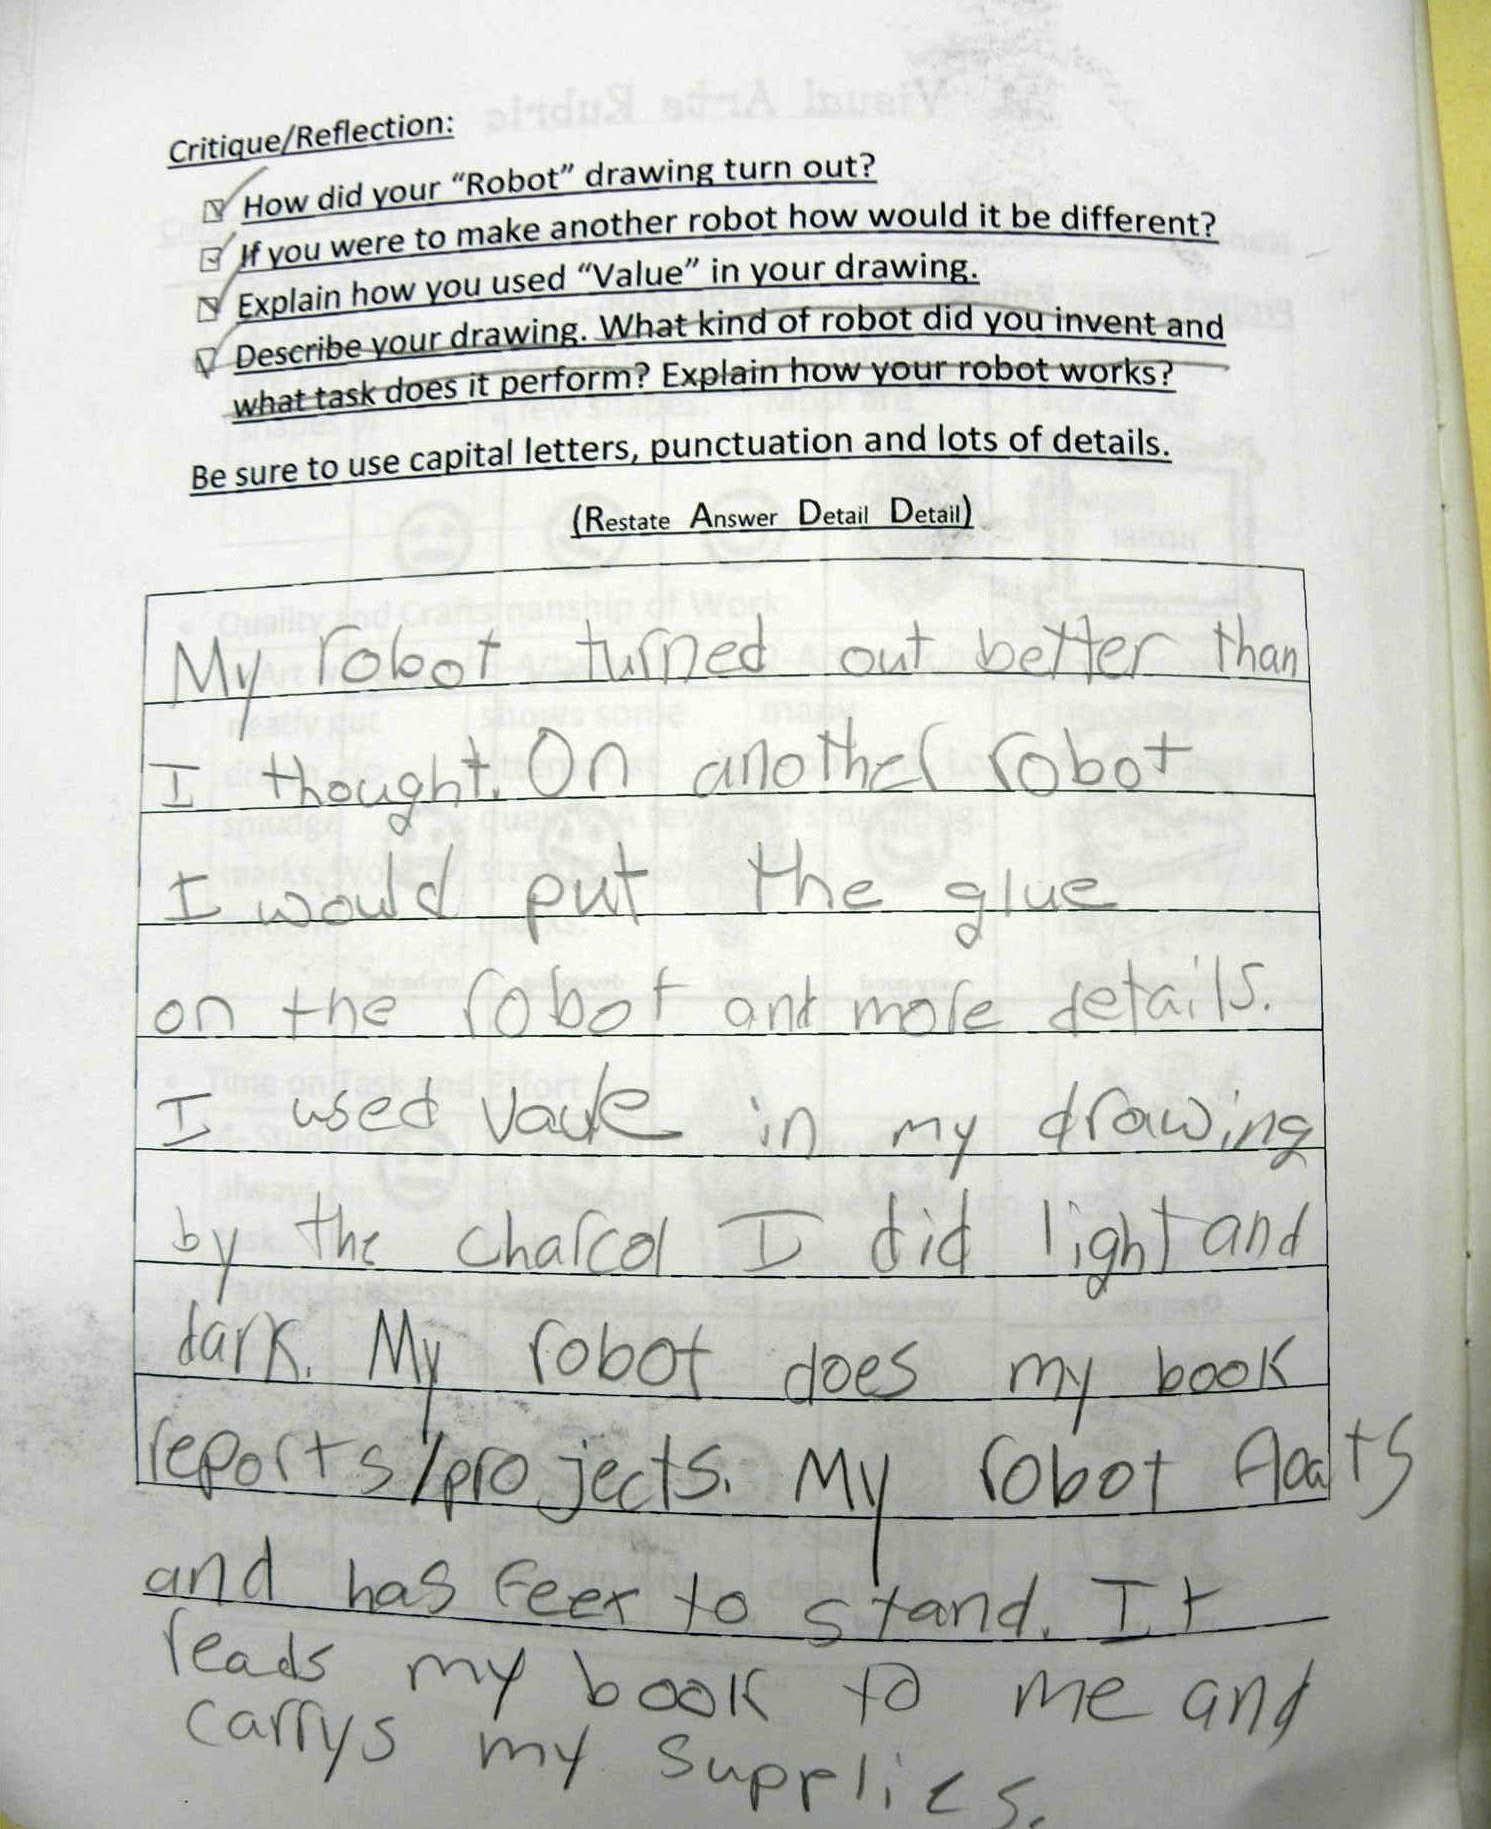 Critique/Reflection:
How did your “Robot” drawing turn out?
If you were to make another robot how would it be different?
Explain how you used “Value” in your drawing.
Describe your drawing. What kind of robot did you invent and
what task does it perform? Explain how your robot works?
Be sure to use capital letters, punctuation and lots of details.
(Restate Answer Detail Detail)
My robot turned out better than
I thought. On another robot
I would put the glue
on the robot and more details.
I used vaule in my drawing
by the charcol I did light and
dark. My robot does my book
reports/projects. My robot floats
and has feet to stand. It
reads my book to me and
carrys my supplies.